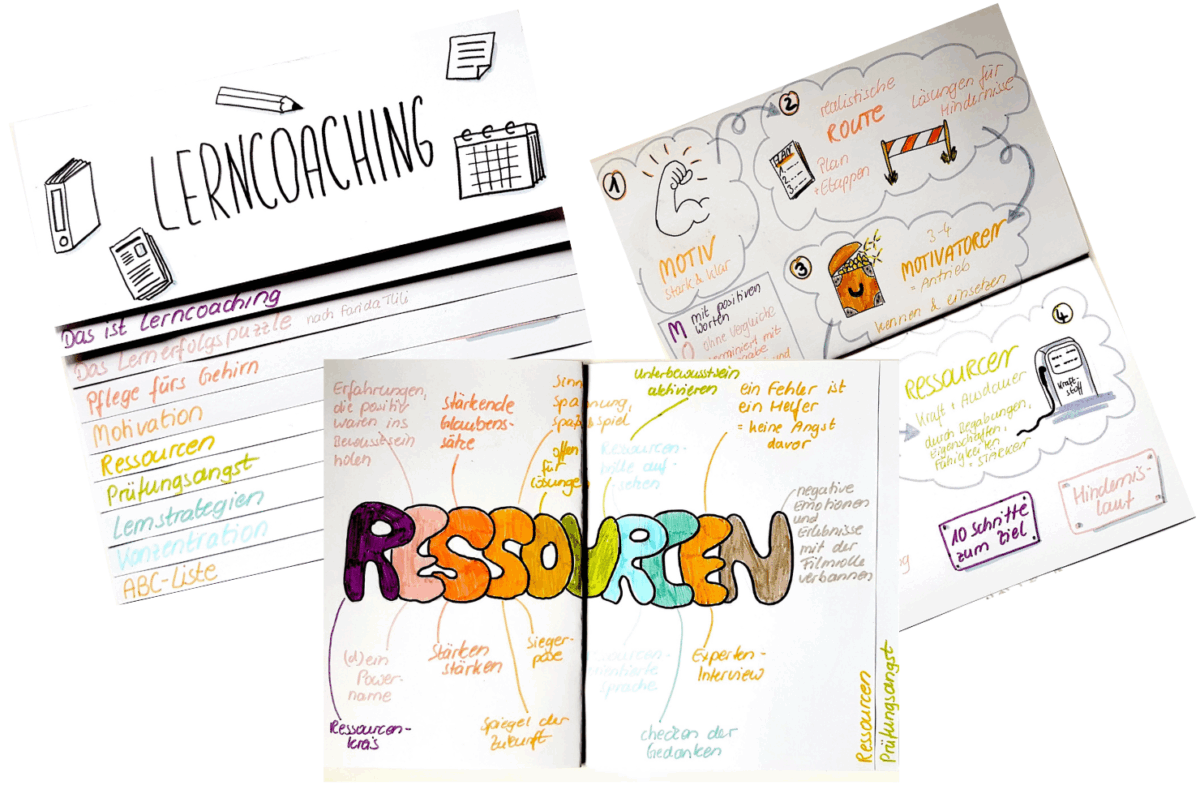 LERNCOACHING
Das ist Lerncoaching
Das Lernerfolgspuzzle nach Farida Tlili
Pflege fürs Gehirn
Motivation
Ressourcen
Prüfungsangst
Lernstrategien
Konzentration
ABC-Liste
1
MOTIV
stark & klar
2
realistische
ROUTE
PLAN
1.
2.
3.
Plan
+Etappen
Lösungen für
Hindernisse
3
3-4
MOTIVATOREN
= Antrieb
kennen & einsetzen
M mit positiven
Worten
ohne Vergleiche
und
4
RESSOURCEN
Kraft + Ausdauer
durch Begabungen,
Eigenschaften,
Fähigkeiten
+ Stärken
Kraft-
stoff
10 Schritte
zum Ziel
Hindernis-
lauf
Erfahrungen,
die positiv
waren ins
Bewusstsein
holen
Stärkende
Glaubens-
sätze
offen
für
Lösungen
Unterbewusstsein
aktivieren
Ressourcen-
brille auf-
setzen
ein Fehler ist
ein Helfer
= keine Angst
davor
negative
Emotionen
und
Erlebnisse
mit der
Filmrolle
verbannen
RESSOURCEN
(d)ein
Power-
name
Stärken
stärken
Sieger-
pose
Sprache
Experten-
Interview
Ressourcen-
kreis
Spiegel der
Zukunft
checken der
Gedanken
Ressourcen
Prüfungsangst